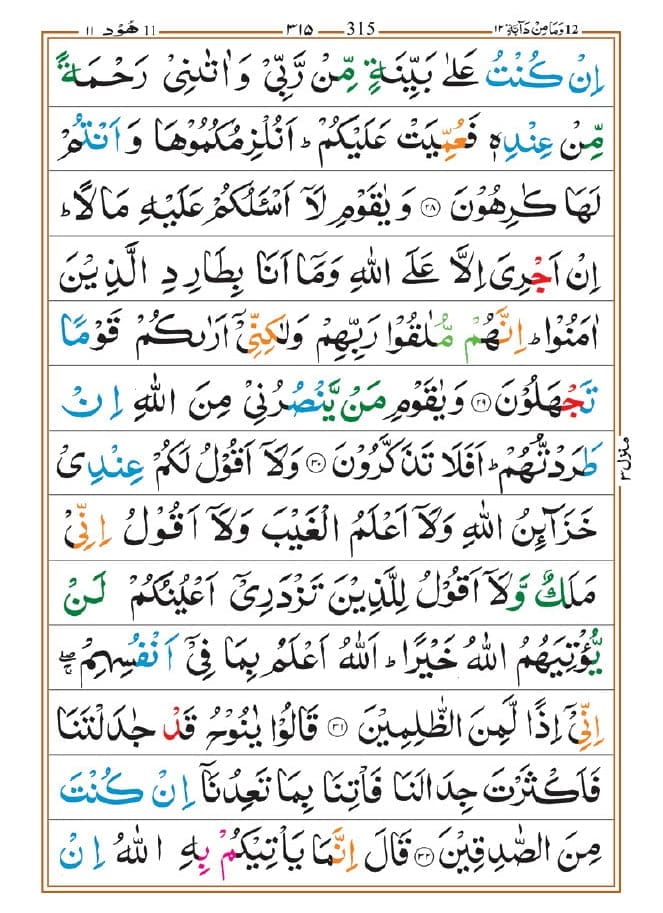 12 وَمَا مِنْ دَآبَّةٍ ١٢ — 315 — ٣١٥ — 11 هُوۡد ١١
اِنۡ كُنۡتُ عَلٰى بَيِّنَةٍ مِّنۡ رَّبِّىۡ وَاٰتٰٮنِىۡ رَحۡمَةً
مِّنۡ عِنۡدِهٖ فَعُمِّيَتۡ عَلَيۡكُمۡؕ اَنُلۡزِمُكُمُوۡهَا وَاَنۡتُمۡ
لَهَا كٰرِهُوۡنَ ﴿۲۸﴾ وَيٰقَوۡمِ لَاۤ اَسۡـَٔلُكُمۡ عَلَيۡهِ مَالًاؕ
اِنۡ اَجۡرِىَ اِلَّا عَلَى اللّٰهِ وَمَاۤ اَنَا بِطَارِدِ الَّذِيۡنَ
اٰمَنُوۡاؕ اِنَّهُمۡ مُّلٰقُوۡا رَبِّهِمۡ وَلٰـكِنِّىۡۤ اَرٰٮكُمۡ قَوۡمًا
تَجۡهَلُوۡنَ ﴿۲۹﴾ وَيٰقَوۡمِ مَنۡ يَّنۡصُرُنِىۡ مِنَ اللّٰهِ اِنۡ
طَرَدْتُّهُمۡؕ اَفَلَا تَذَكَّرُوۡنَ ﴿۳۰﴾ وَلَاۤ اَقُوۡلُ لَـكُمۡ عِنۡدِىۡ
خَزَآٮِٕنُ اللّٰهِ وَلَاۤ اَعۡلَمُ الۡغَيۡبَ وَلَاۤ اَقُوۡلُ اِنِّىۡ
مَلَكٌ وَّلَاۤ اَقُوۡلُ لِلَّذِيۡنَ تَزۡدَرِىۡۤ اَعۡيُنُكُمۡ لَنۡ
يُّؤۡتِيَهُمُ اللّٰهُ خَيۡرًاؕ اَللّٰهُ اَعۡلَمُ بِمَا فِىۡۤ اَنۡفُسِهِمۡ ۖۚ
اِنِّىۡۤ اِذًا لَّمِنَ الظّٰلِمِيۡنَ ﴿۳۱﴾ قَالُوۡا يٰنُوۡحُ قَدۡ جٰدَلۡتَنَا
فَاَكۡثَرۡتَ جِدَالَـنَا فَاۡتِنَا بِمَا تَعِدُنَاۤ اِنۡ كُنۡتَ
مِنَ الصّٰدِقِيۡنَ ﴿۳۲﴾ قَالَ اِنَّمَا يَاۡتِيۡكُمۡ بِهِ اللّٰهُ اِنۡ
منزل ٣